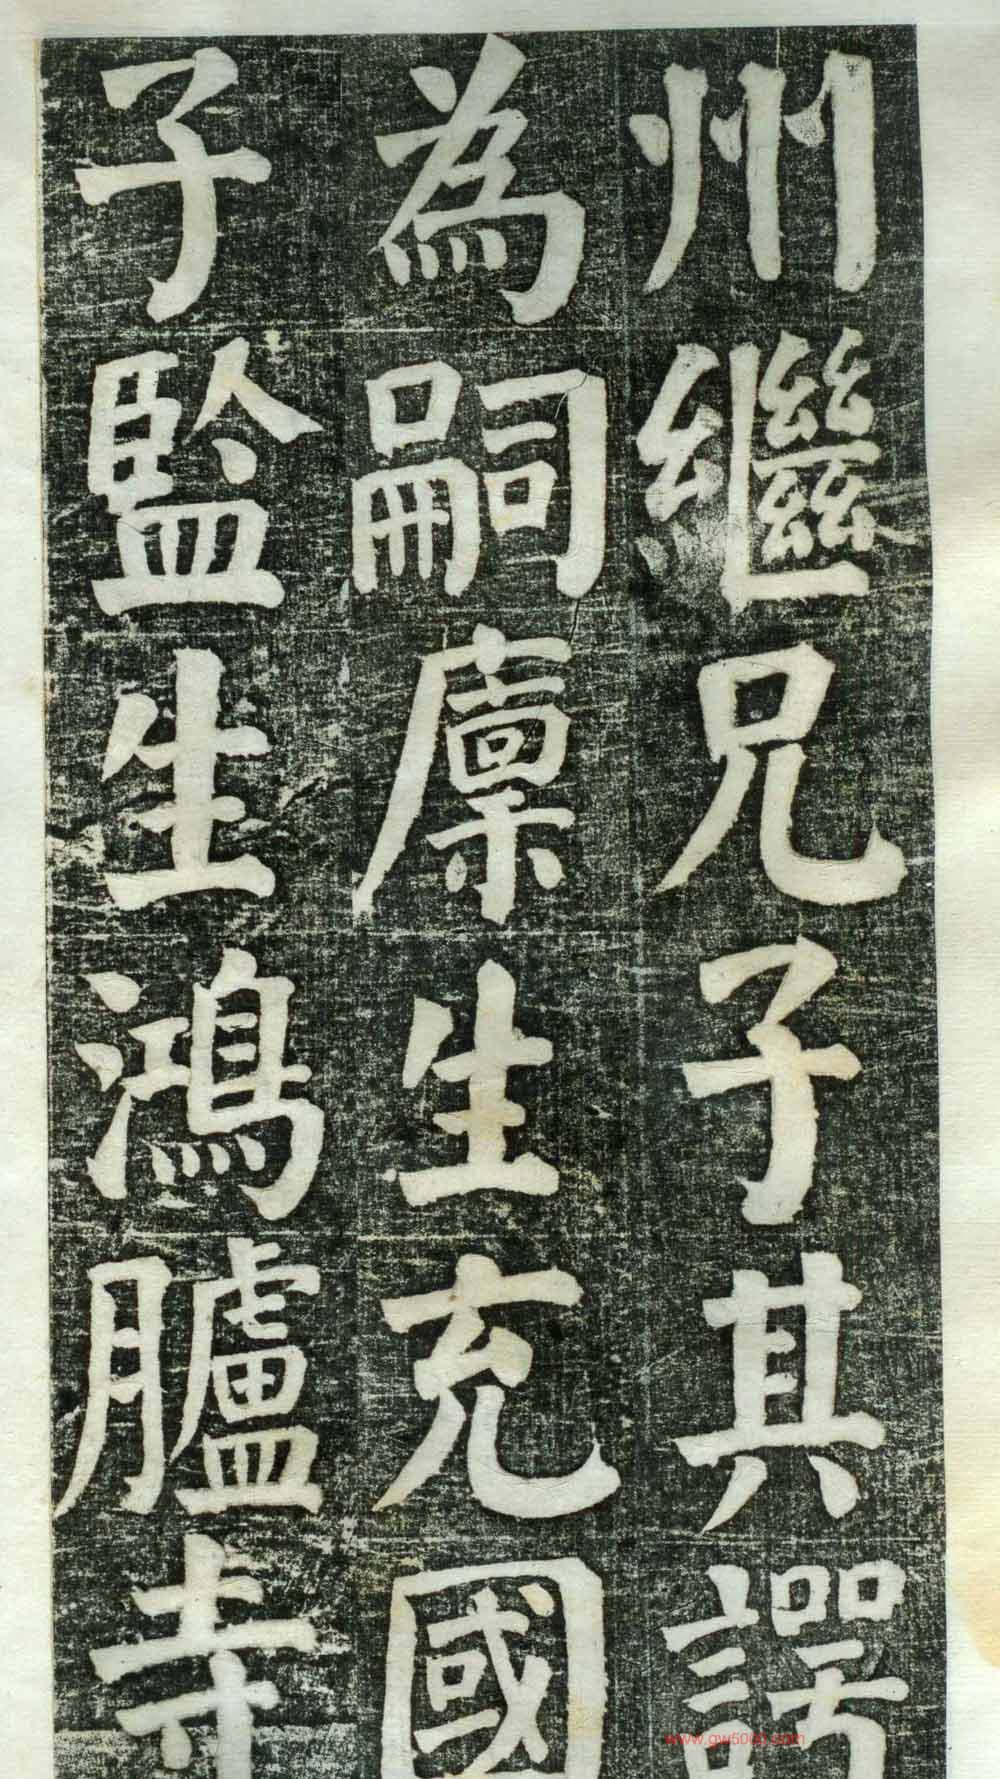 州繼兄子其諤
為嗣廩生充國
子監生鴻臚寺
www.gw5000.com